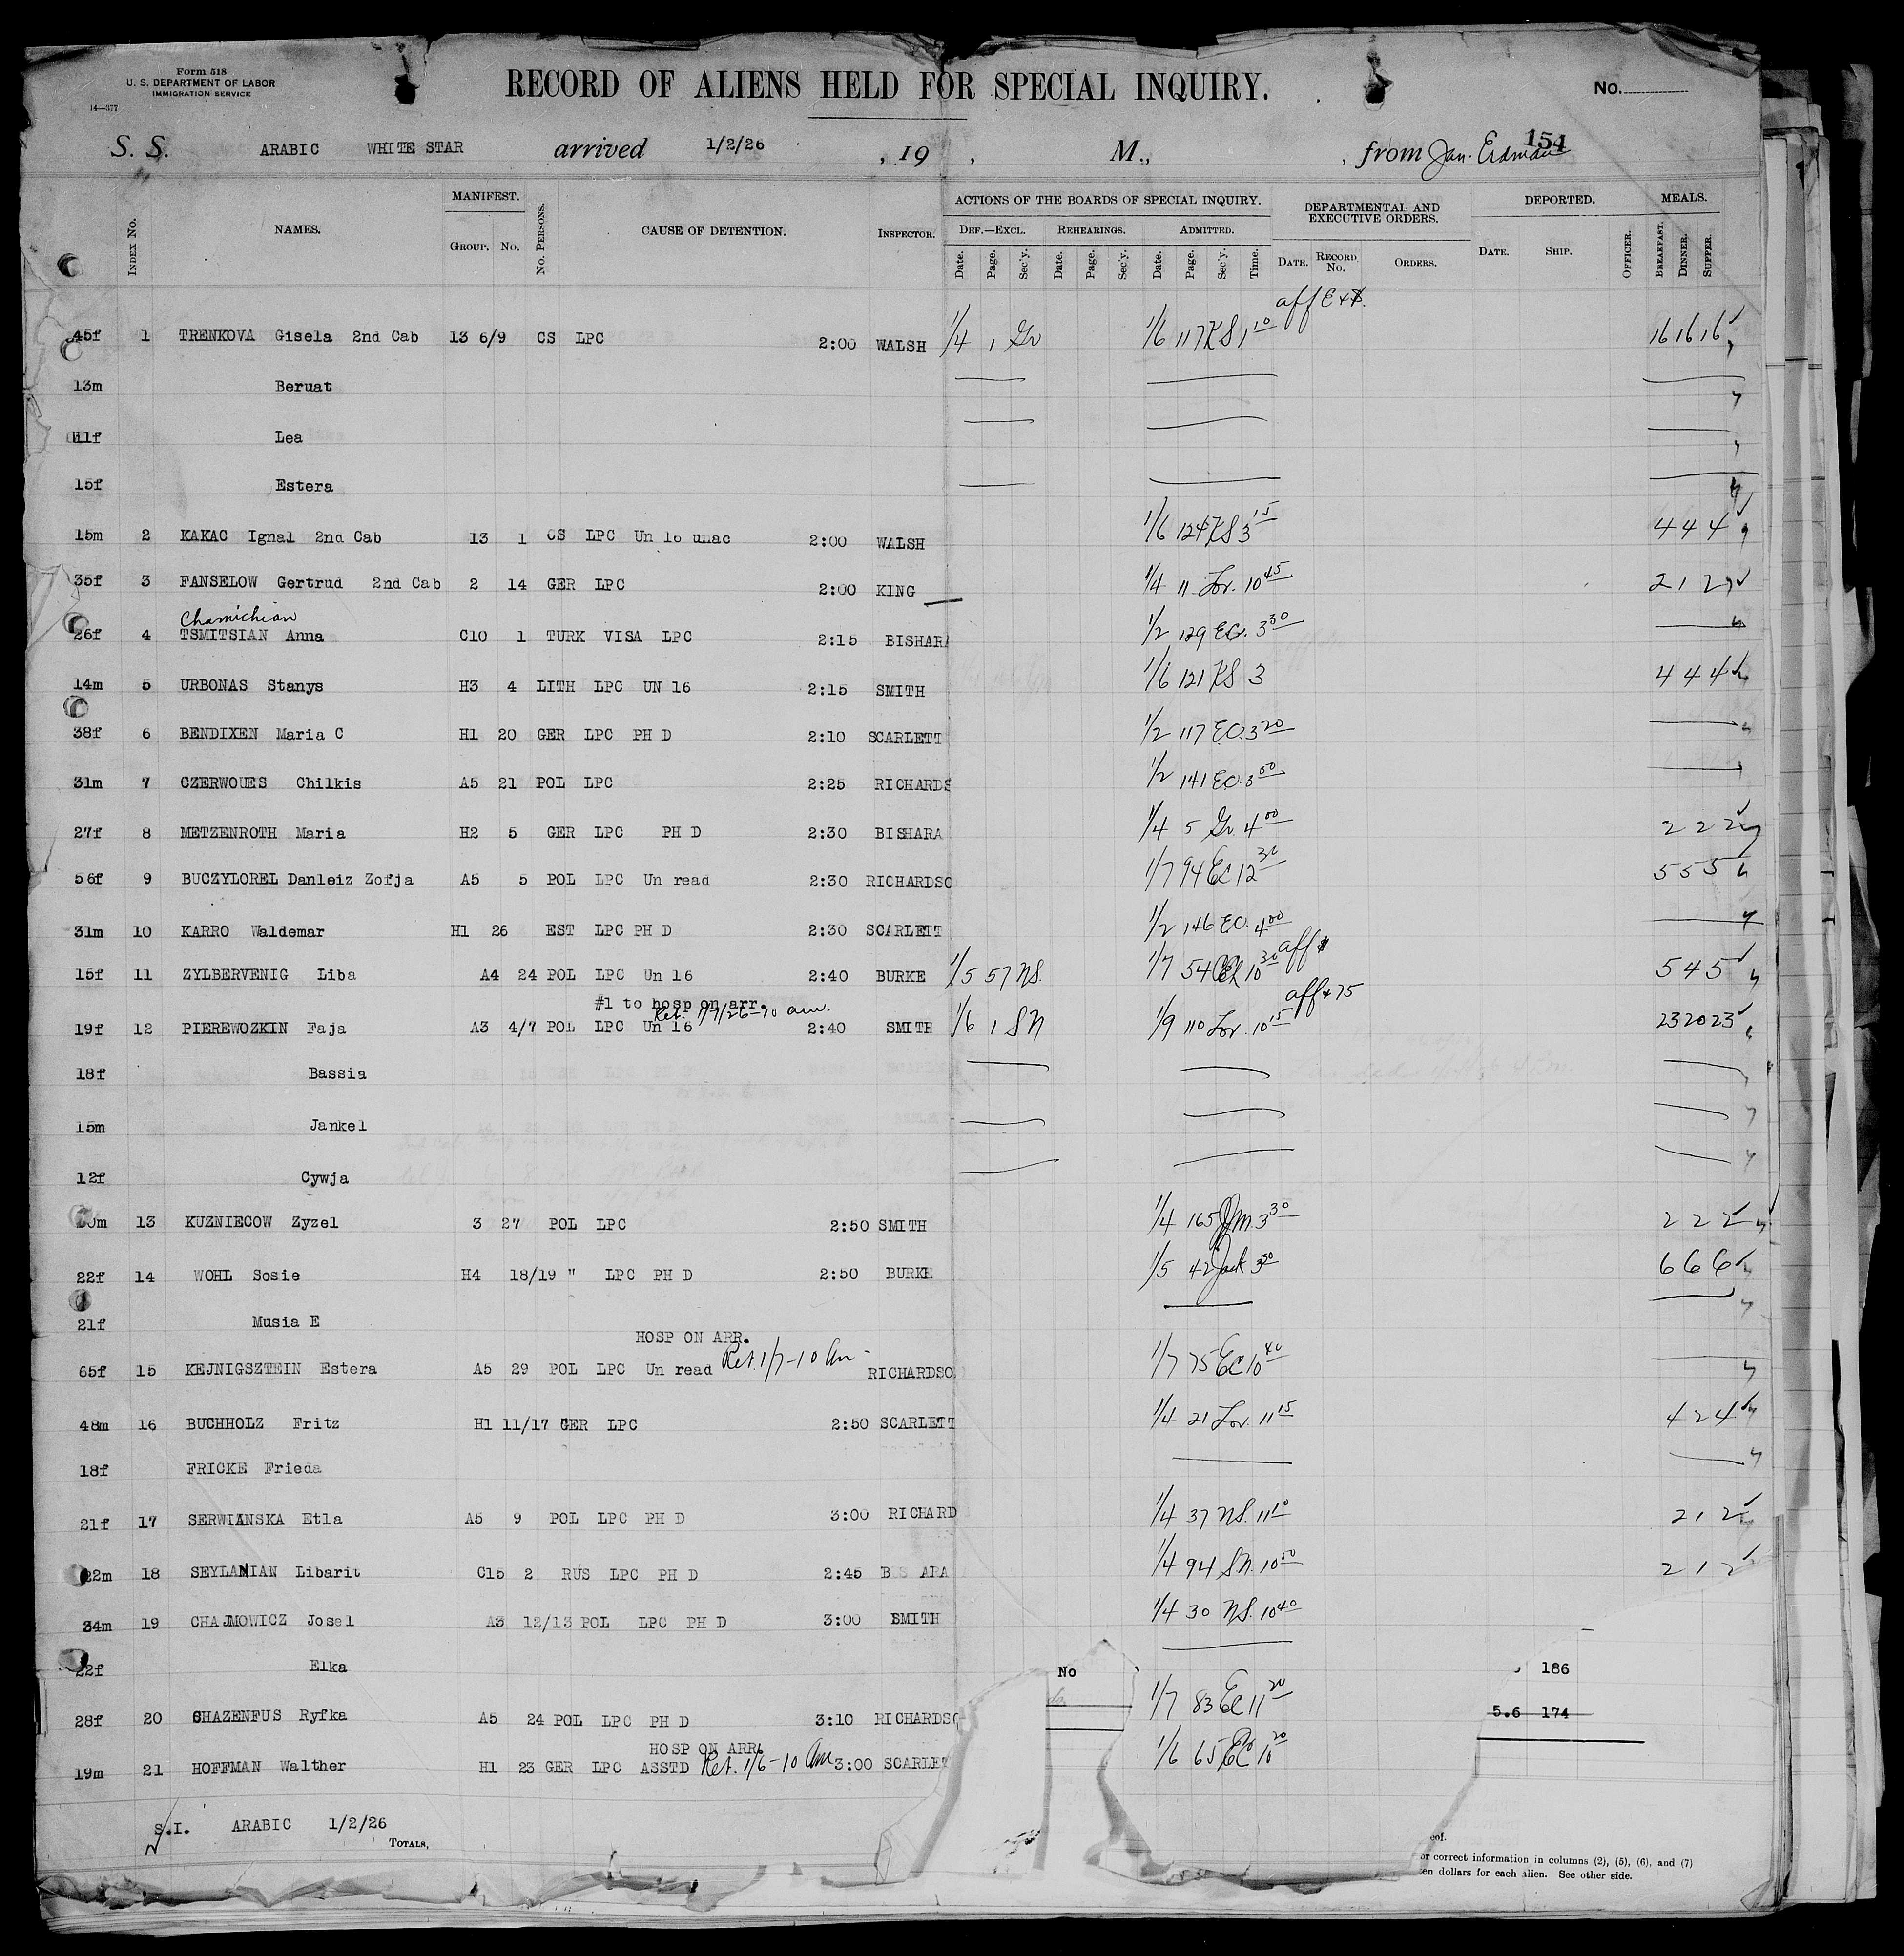 Form 518
U. S. DEPARTMENT OF LABOR
IMMIGRATION SERVICE
14—377
RECORD OF ALIENS HELD FOR SPECIAL INQUIRY.
No.
154
S. S. ARABIC WHITE STAR arrived 1/2/26 , 19 , M., , from Jan. Erdman
INDEX No. NAMES. MANIFEST. GROUP. No. No. PERSONS. CAUSE OF DETENTION. INSPECTOR. ACTIONS OF THE BOARDS OF SPECIAL INQUIRY. DEF.—EXCL. REHEARINGS. ADMITTED. DEPARTMENTAL AND EXECUTIVE ORDERS. DEPORTED. MEALS.
Date. Page. Sec'y. Date. Page. Sec'y. Date. Page. Sec'y. Time. DATE. RECORD No. ORDERS. DATE. SHIP. OFFICER. BREAKFAST. DINNER. SUPPER.
45f 1 TRENKOVA Gisela 2nd Cab 13 6/9 CS LPC 2:00 WALSH 1/4 1 Gr 1/6 117 KS 1 10 16 16 16
13m Beruat
11f Lea
15f Estera
15m 2 KAKAC Ignal 2nd Cab 13 1 CS LPC Un 16 unac 2:00 WALSH 1/6 124 KS 3 15 4 4 4
35f 3 FANSELOW Gertrud 2nd Cab 2 14 GER LPC 2:00 KING 1/4 11 Lov. 10 45 2 1 2
Chamichian
26f 4 TSMITSIAN Anna C10 1 TURK VISA LPC 2:15 BISHARA 1/2 129 EO. 3 30
14m 5 URBONAS Stanys H3 4 LITH LPC UN 16 2:15 SMITH 1/6 121 KS 3 4 4 4
38f 6 BENDIXEN Maria C H1 20 GER LPC PH D 2:10 SCARLETT 1/2 117 EO. 3 20
31m 7 CZERWOUES Chilkis A5 21 POL LPC 2:25 RICHARDS 1/2 141 EO. 3 00
27f 8 METZENROTH Maria H2 5 GER LPC PH D 2:30 BISHARA 1/4 5 Gr. 4 00 2 2 2
56f 9 BUCZYLOREL Danleiz Zofja A5 5 POL LPC Un read 2:30 RICHARDSO 1/7 94 EC 12 30 5 5 5
31m 10 KARRO Waldemar H1 26 EST LPC PH D 2:30 SCARLETT 1/2 146 EO. 4 00
15f 11 ZYLBERVENIG Liba A4 24 POL LPC Un 16 2:40 BURKE 1/5 57 NS. 1/7 54 10 30 aff 5 4 5
#1 to hosp on arr.
Ret. 1/7/26-10 am.
19f 12 PIEREWOZKIN Faja A3 4/7 POL LPC Un 16 2:40 SMITH 1/6 1 SN 1/9 110 Lov. 10 15 23 20 23
18f Bassia
15m Jankel
12f Cywja
13 KUZNIECOW Zyzel 3 27 POL LPC 2:50 SMITH 1/4 165 3 30 2 2 2
22f 14 WOHL Sosie H4 18/19 " LPC PH D 2:50 BURKE 1/5 42 Jack 3 30 6 6 6
21f Musia E
HOSP ON ARR.
65f 15 KEJNIGSZTEIN Estera A5 29 POL LPC Un read Ret. 1/7-10 am RICHARDSO 1/7 75 EC 10 40
48m 16 BUCHHOLZ Fritz H1 11/17 GER LPC 2:50 SCARLETT 1/4 21 Lov. 11 15 4 2 4
18f FRICKE Frieda
21f 17 SERWIANSKA Etla A5 9 POL LPC PH D 3:00 RICHARD 1/4 37 NS. 11 10 2 1 2
22m 18 SEYLANIAN Libarit C15 2 RUS LPC PH D 2:45 B S ARA 1/4 94 SN. 10 50 2 1 2
34m 19 CHAJMOWICZ Josel A3 12/13 POL LPC PH D 3:00 SMITH 1/4 30 NS. 10 40
22f Elka
No 186
28f 20 SHAZENFUS Ryfka A5 24 POL LPC PH D 3:10 RICHARDSO 1/7 83 EC 11 20
5.6 174
HOSP ON ARR.
19m 21 HOFFMAN Walther H1 23 GER LPC ASSTD Ret. 1/6-10 am 3:00 SCARLET 1/6 65 EC 10 20
S.I. ARABIC 1/2/26
TOTALS,
eof.
or correct information in columns (2), (5), (6), and (7)
ten dollars for each alien. See other side.